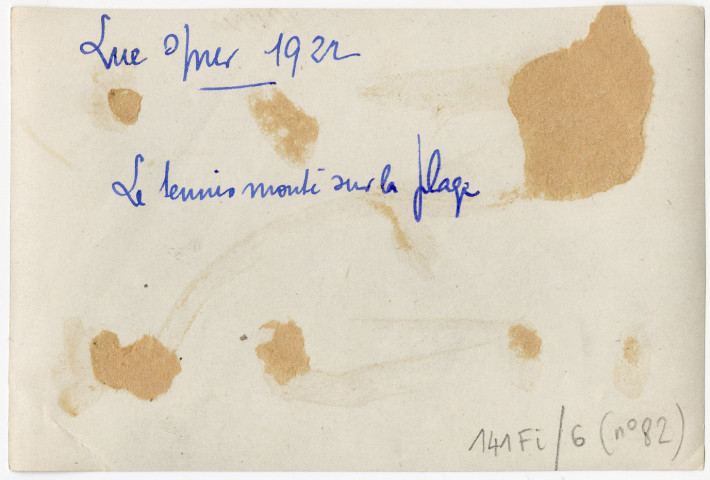 Luc s/mer 1922
Le tennis monté sur la plage
141Fi/6 (n°82)